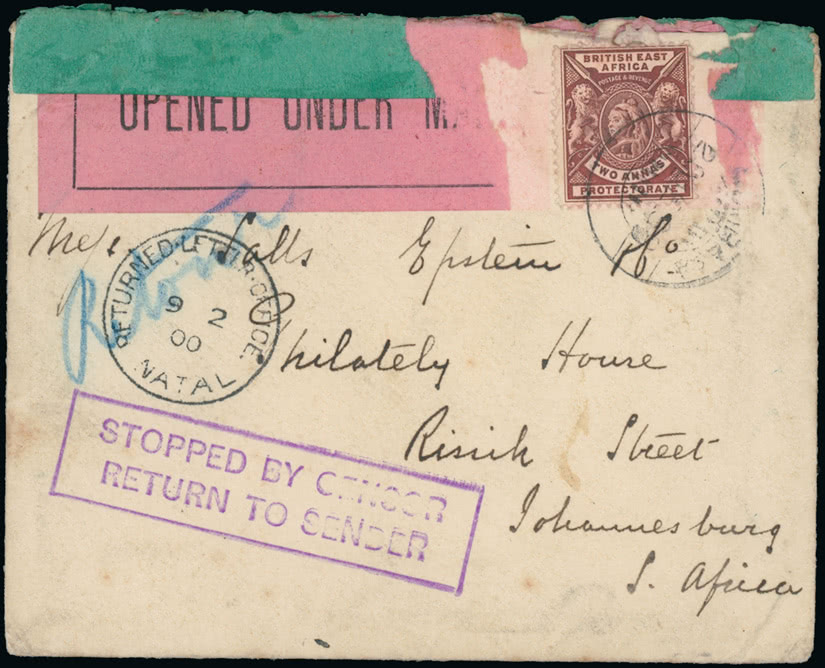 BRITISH EAST
AFRICA
POSTAGE & REVENUE
TWO ANNAS
PROTECTORATE
OPENED UNDER MA
Mess. Salls Epstein
Philately House
Rissik Street
Johannesburg
S. Africa
RETURNED·LETTER·OFFICE·
9 2
00
NATAL
STOPPED BY CENSOR
RETURN TO SENDER